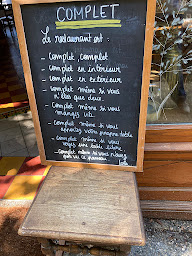 COMPLET
Le restaurant est :
- Complet, Complet
- Complet en intérieur
- Complet en extérieur
- Complet même si vous
n'êtes que deux.
- Complet même si vous
mangez vite.
- Complet même si vous
apportez votre propre table
- Complet même si vous
voyez une table libre
- Complet même si vous
pas vu ce panneau